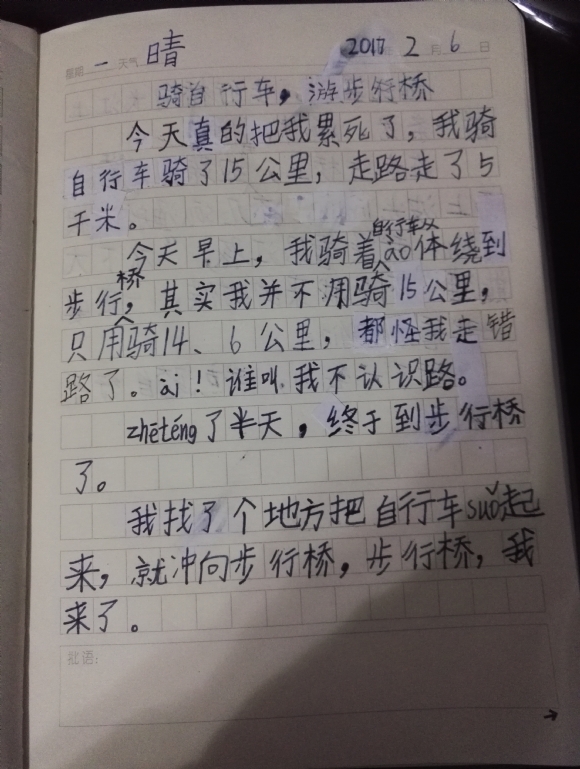 星期 一 天气 晴 2017 年 2 月 6 日
骑自行车,游步行桥
今天真的把我累死了,我骑
自行车骑了15公里,走路走了5
千米。
今天早上,我骑着自行车从ào体绕到
步行桥,其实我并不用骑15公里,
只用骑14、6公里,都怪我走错
路了。ài!谁叫我不认识路。
zhēténg了半天,终于到步行桥
了。
我找了个地方把自行车suǒ起
来,就冲向步行桥,步行桥,我
来了。
批语:
→